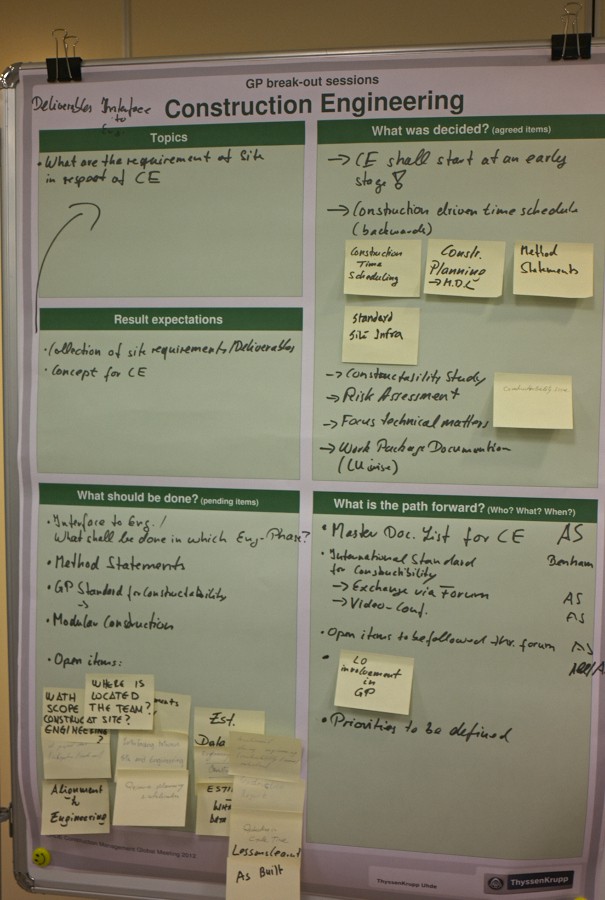 GP break-out sessions
Construction Engineering
Deliverables Interface
to
Topics
• What are the requirement of Site
in respect of CE
Result expectations
• Collection of site requirements/Deliverables
• Concept for CE
What was decided? (agreed items)
→ CE shall start at an early
stage!
→ Construction driven time schedule
(backwards)
Construction
Time
Scheduling
Constr.
Planning
→ M.D.L
Method
Statements
Standard
Site Infra
→ Constructability Study
→ Risk Assessment
→ Focus technical matters
→ Work Package Documention
What should be done? (pending items)
• Interface to Eng. /
What shall be done in which Eng-Phase?
• Method Statements
• GP Standard for Constructability
→
• Modular Construction
• Open items:
WATH
SCOPE
CONSTRUC
ENGINEERING
?
WHERE IS
LOCATED
THE TEAM?
AT SITE?
ments
Est.
Data
Alignment
to
Engineering
ESTI
Lessons learnt
As Built
What is the path forward? (Who? What? When?)
• Master Doc. List for CE AS
• International Standard Benham
for Constructibility
→ Exchange via Forum AS
→ Video-Conf. AS
• Open items to be followed thr. forum AS
•
LO
involvement
in
GP
• Priorities to be defined
Construction Management Global Meeting 2012
ThyssenKrupp Uhde
ThyssenKrupp